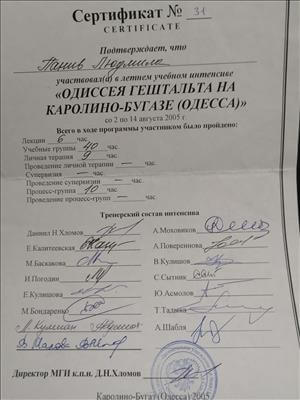 Сертификат № 31
CERTIFICATE
Подтверждает, что
Людмила
участвовал(а) в летнем учебном интенсиве
«ОДИССЕЯ ГЕШТАЛЬТА НА
КАРОЛИНО-БУГАЗЕ (ОДЕССА)»
со 2 по 14 августа 2005 г.
Всего в ходе программы участником было пройдено:
Лекции 6 час
Учебные группы 40 час
Личная терапия 9 час
Проведение личной терапии — час
Супервизия — час
Проведение супервизии — час
Процесс-группа 10 час
Проведение процесс-групп — час
Тренерский состав интенсива
Даниил Н.Хломов
А.Моховиков
Е.Калитеевская
А.Поверенnova
М.Баскакова
В.Кулишов
И.Погодин
С.Сытник
Е.Кулишова
Ю.Асмолов
М.Бондаренко
Т.Тадыка
А.Шабля
Директор МГИ к.п.н. Д.Н.Хломов
Каролино-Бугаз (Одесса) 2005